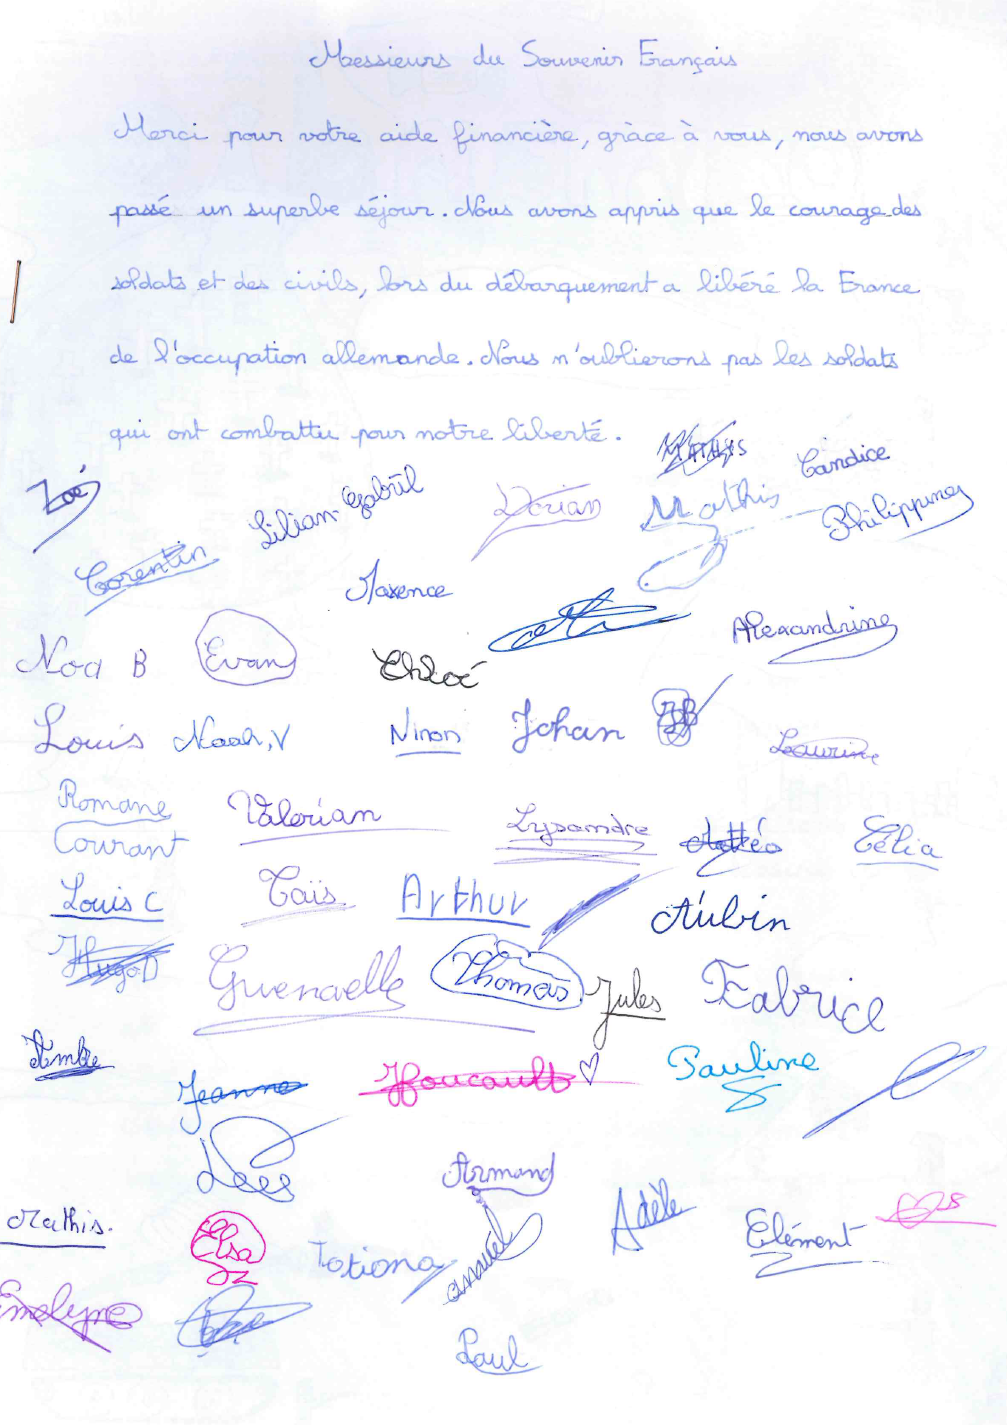 Messieurs du Souvenir Français
Merci pour votre aide financière, grâce à vous, nous avons
passé un superbe séjour. Nous avons appris que le courage des
soldats et des civils, lors du débarquement a libéré la France
de l'occupation allemande. Nous n'oublierons pas les soldats
qui ont combattu pour notre liberté.
Mathys
Candice
Zoé
Lilian Gabriel
Dorian
Mathis
Philippine
Corentin
Maxence
Alexandrine
Noa B
Evan
Chloé
Louis
Noah,V
Ninon
Johan
Laurine
Romane
Courant
Valerian
Lysandre
Mattéo
Célia
Louis C
Taïs
Arthur
Aubin
Hugo D
Gwenaelle
Thomas
Jules
Fabrice
Ambre
Jeanne
Foucault
Pauline
Armand
Mathis.
Elsa
Tatiana
Adèle
Clément
Emelyne
Paul